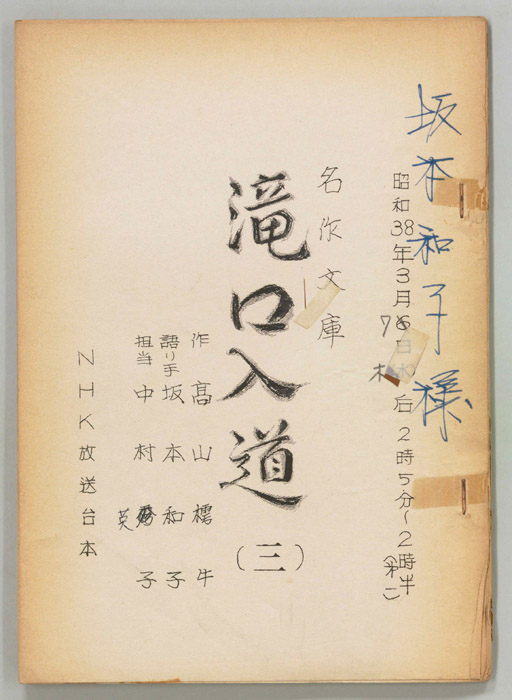 坂本和子様
昭和38年3月6日 后2時5分～2時半
7
木
(第二)
名作文庫
滝口入道
(三)
作 高山樗牛
語り手 坂本和子
担当 中村 子
英
NHK放送台本